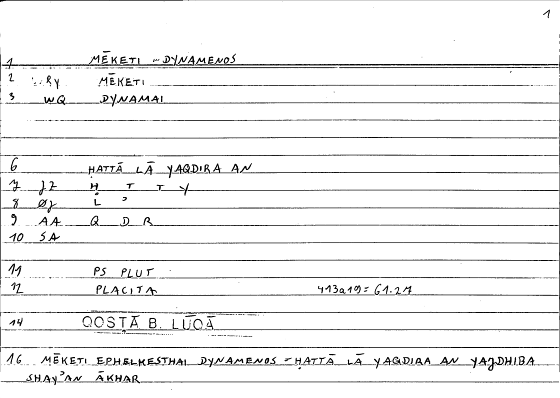 1
1 MĒKETI - DYNAMENOS
2 Ry MĒKETI
3 WQ DYNAMAI
6 ḤATTĀ LĀ YAQDIRA AN
7 JZ Ḥ T T Y
8 ØJ L ʾ
9 AA Q D R
10 SA
11 PS PLUT
12 PLACITA 413a19 = 61.27
14 QOSṬĀ B. LŪQĀ
16 MĒKETI EPHELKESTHAI DYNAMENOS - ḤATTĀ LĀ YAQDIRA AN YAJDHIBA
SHAYʾAN ĀKHAR